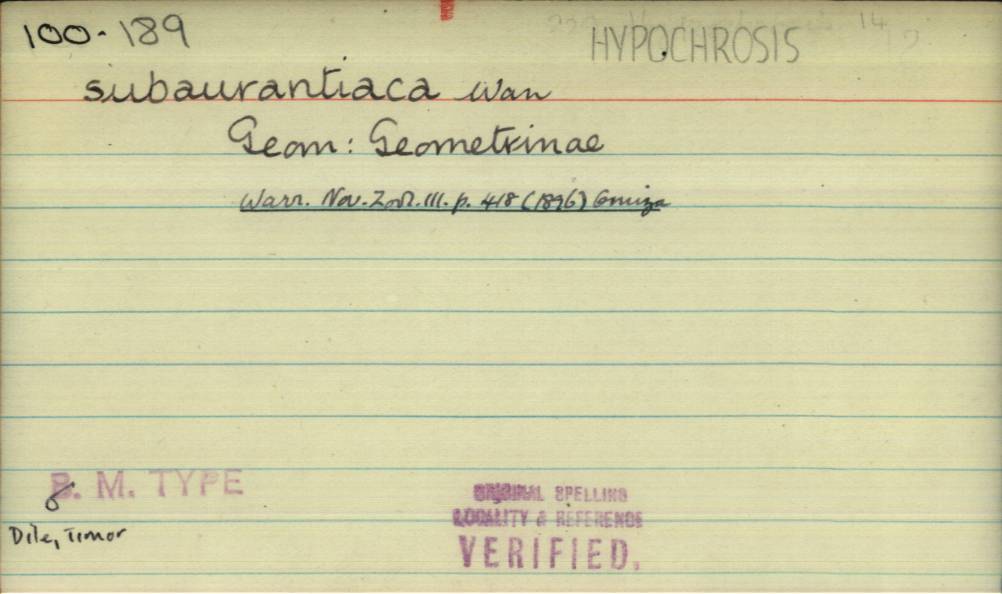 100-189
HYPOCHROSIS
14
subaurantiaca Warr
Geom: Geometrinae
Warr. Nov. Zool. III. p. 418 (1896) Omiza
B. M. TYPE
Dile, Timor
ORIGINAL SPELLING
LOCALITY & REFERENCE
VERIFIED.